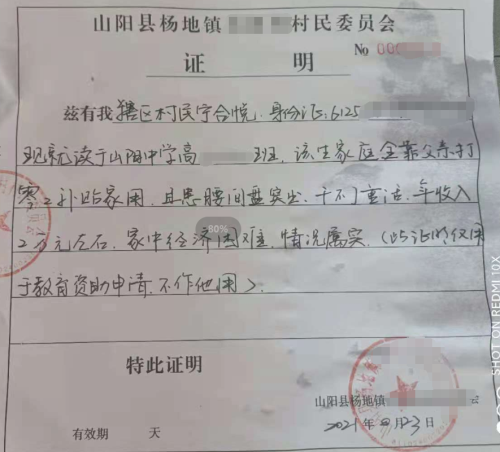 山阳县杨地镇 村民委员会
证 明
No 00
兹有我辖区村民宁合悦，身份证：6125
现就读于山阳中学高 班，该生家庭全靠父亲打
零工补贴家用，且患腰间盘突出，干不了重活，年收入
2万元左右，家中经济困难，情况属实，（此证明仅用
于教育资助申请，不作他用）。
80%
特此证明
山阳县杨地镇
2021年 月23日
有效期 天
SHOT ON REDMI 10X